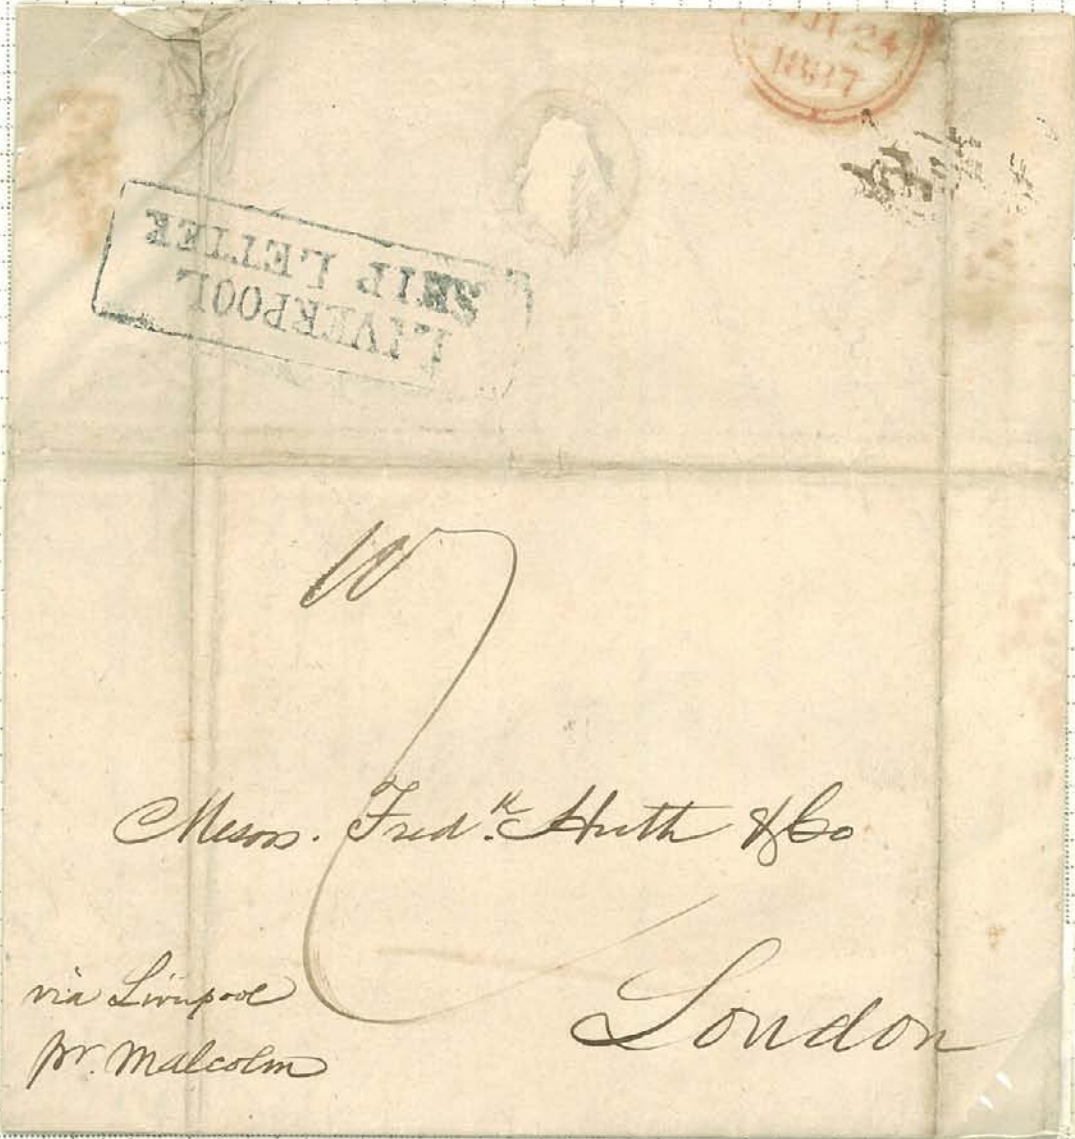 24
1837
LIVERPOOL
SHIP LETTER
Messrs. Fredk. Huth & Co
London
via Liverpool
pr. Malcolm